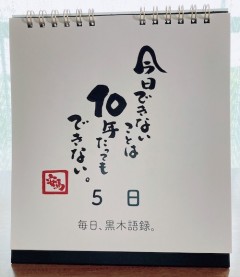 今日できない
ことは
10年たっても
できない。
5日
毎日、黒木語録。